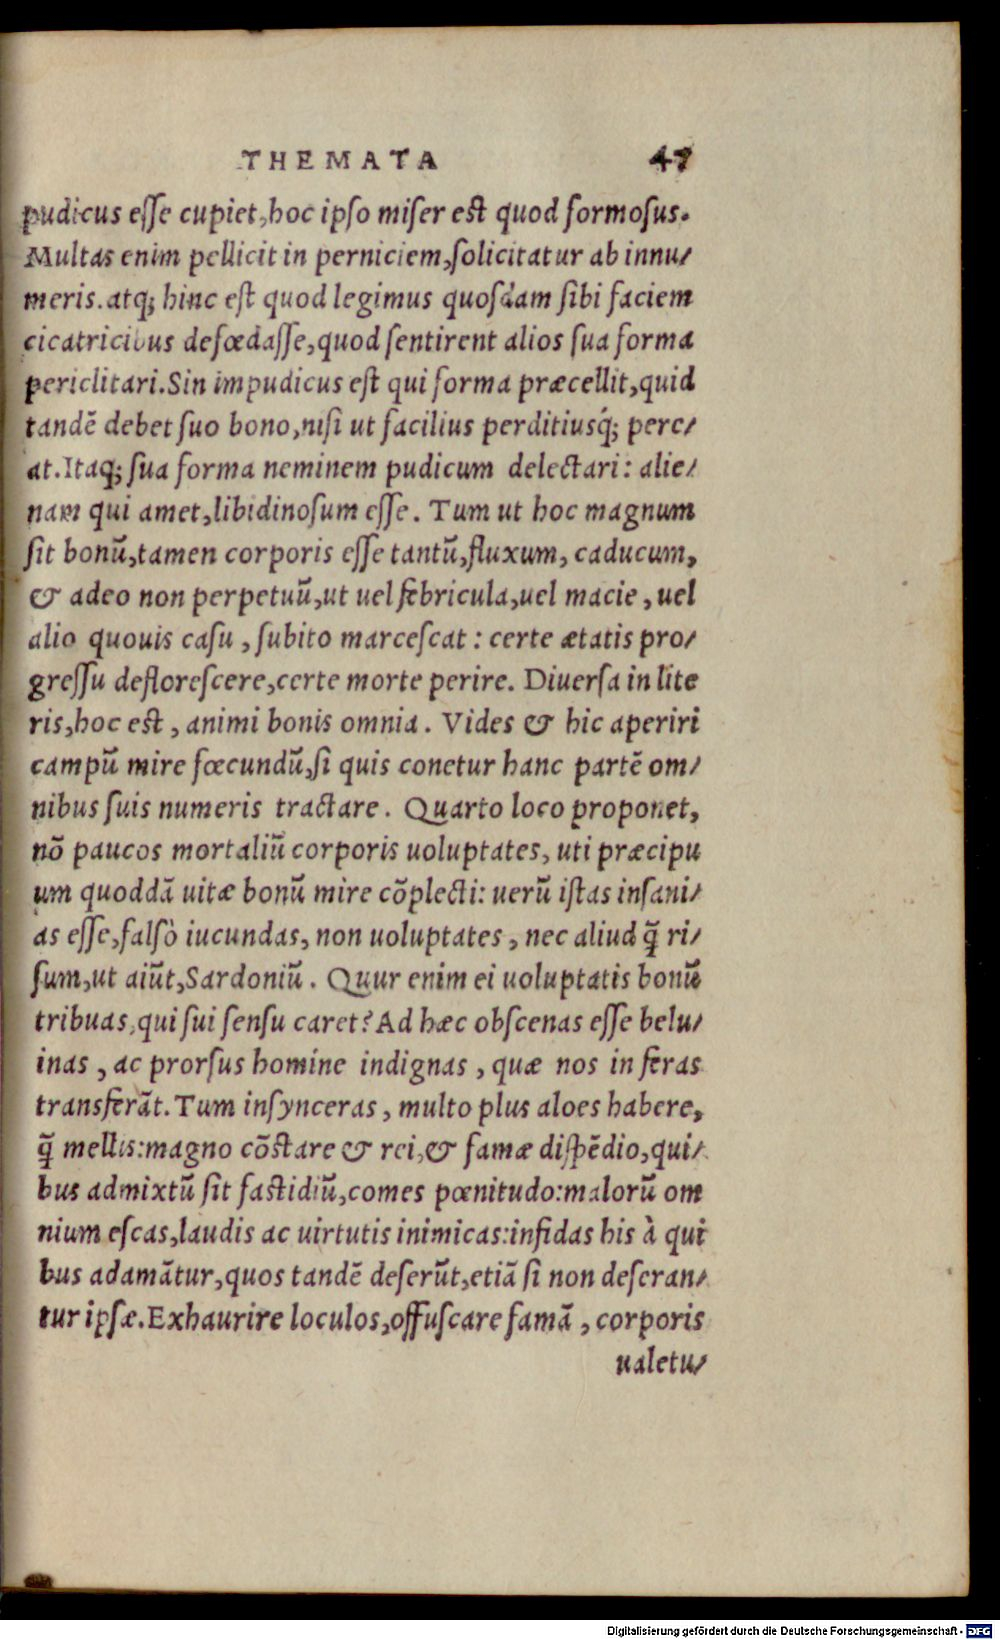 THEMATA 47
pudicus eſſe cupiet, hoc ipſo miſer eſt quod formoſus.
Multas enim pellicit in perniciem, ſolicitatur ab innu⸗
meris. atq; hinc eſt quod legimus quoſdam ſibi faciem
cicatricibus defœdaſſe, quod ſentirent alios ſua forma
periclitari. Sin impudicus eſt qui forma præcellit, quid
tandē debet ſuo bono, niſi ut facilius perditiusq́; pere⸗
at. Itaq; ſua forma neminem pudicum delectari: alie⸗
nam qui amet, libidinoſum eſſe. Tum ut hoc magnum
ſit bonū, tamen corporis eſſe tantū, fluxum, caducum,
& adeo non perpetuū, ut uel febricula, uel macie, uel
alio quouis caſu, ſubito marceſcat: certe ætatis pro⸗
greſſu defloreſcere, certe morte perire. Diuerſa in lite
ris, hoc eſt, animi bonis omnia. Vides & hic aperiri
campū mire fœcundū, ſi quis conetur hanc partē om⸗
nibus ſuis numeris tractare. Quarto loco proponet,
nō paucos mortaliū corporis uoluptates, uti præcipu
um quoddā uitæ bonū mire cōplecti: uerū iſtas inſani⸗
as eſſe, falſò iucundas, non uoluptates, nec aliud q̄ ri⸗
ſum, ut aiūt, Sardoniū. Quur enim ei uoluptatis bonū
tribuas, qui ſui ſenſu caret? Ad hæc obſcenas eſſe belu⸗
inas, ac prorſus homine indignas, quæ nos in feras
transferāt. Tum inſynceras, multo plus aloes habere,
q̄ mellis: magno cōſtare & rei, & famæ diſpēdio, qui⸗
bus admixtū ſit faſtidiū, comes pœnitudo: malorū om
nium eſcas, laudis ac uirtutis inimicas: infidas his à qui
bus adamātur, quos tandē deſerūt, etiā ſi non deſeran⸗
tur ipſæ. Exhaurire loculos, offuſcare famā, corporis
ualetu⸗
Digitalisierung gefördert durch die Deutsche Forschungsgemeinschaft - DFG